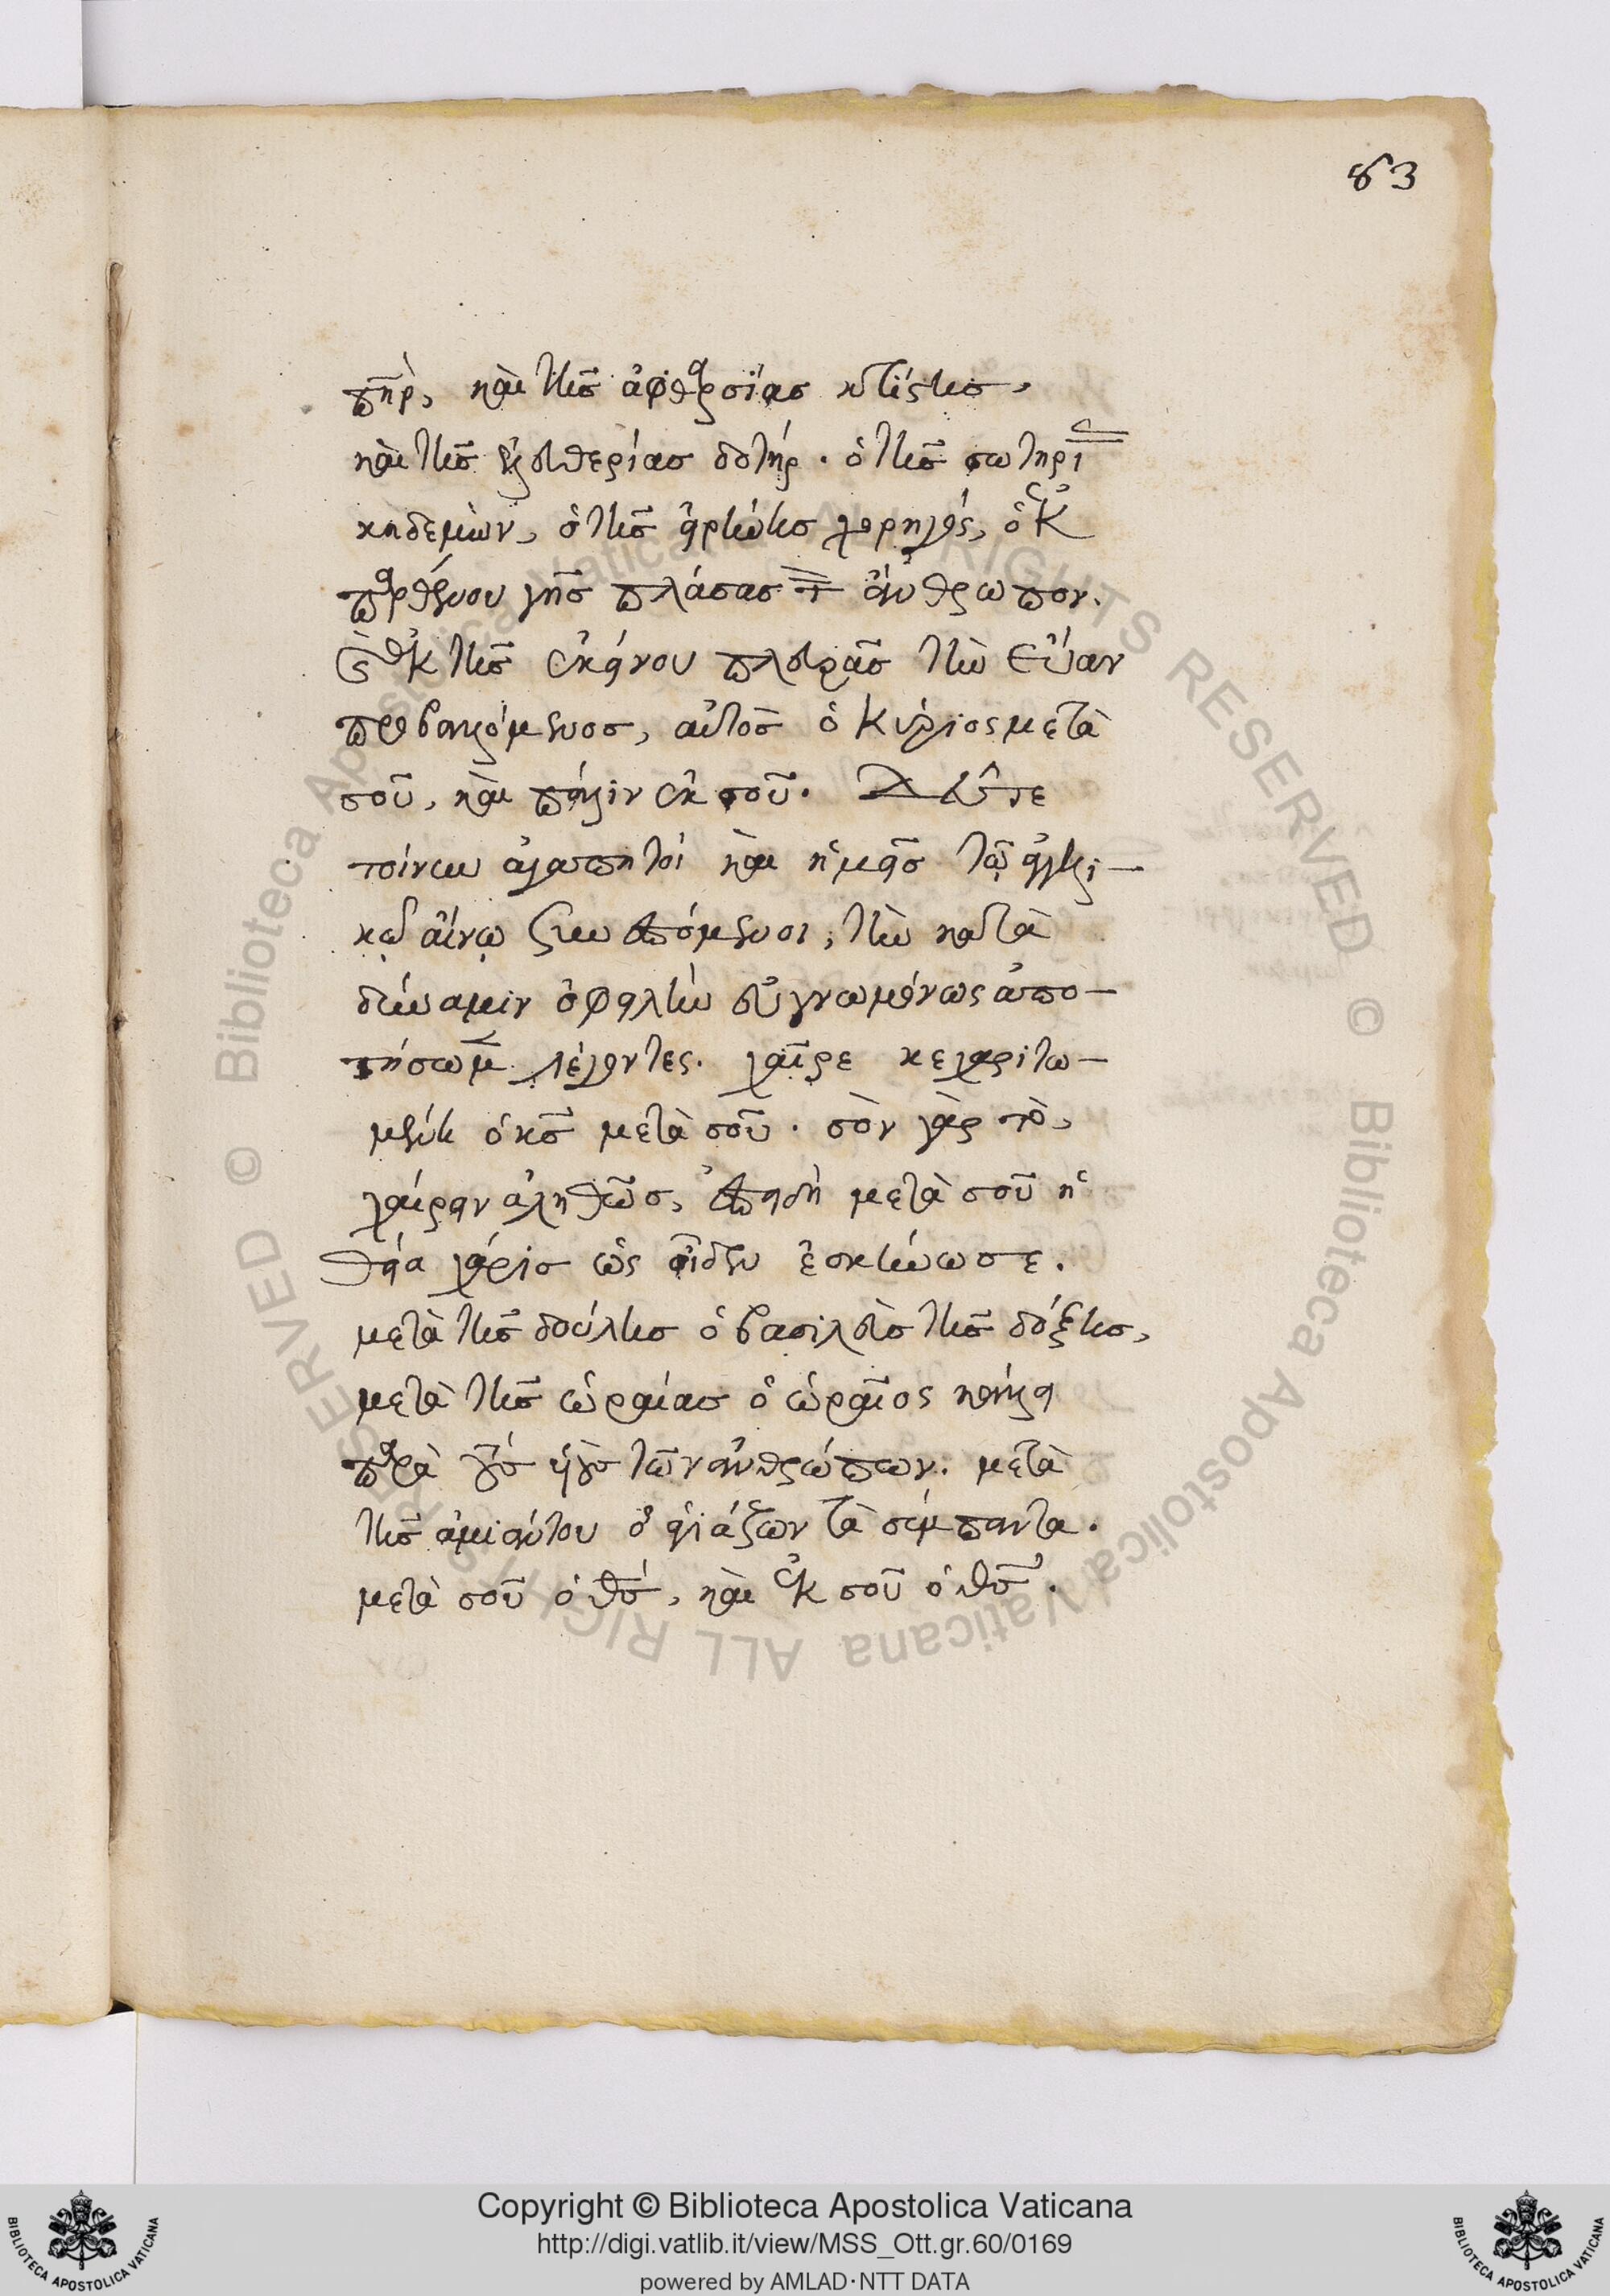 83
πηρ, καὶ τῆς ἀφθαρσίας κτίστης,
καὶ τῆς ἐλευθερίας δοτήρ. ὁ τῆς σωτηρί
κηδεμών, ὁ τῆς εἰρήνης χορηγός, ὁ ἐκ
παρθένου γῆς πλάσας τὸν ἄνθρωπον.
ἐκ τῆς ἐκείνου πλευρᾶς τὴν Εὔαν
προβαλλόμενος, αὐτὸς ὁ Κύριος μετὰ
σοῦ, καὶ πάλιν ἐκ σοῦ. Δεῦτε
τοίνυν ἀγαπητοὶ καὶ ἡμᾶς τῷ ἀγγελι-
κῷ αἴνῳ ἑπόμενοι, τὴν κατὰ
δύναμιν ὀφειλὴν εὐγνωμόνως ἀπο-
τίσωμεν λέγοντες. χαῖρε κεχαριτω-
μένη ὁ κς μετὰ σοῦ. σὸν γὰρ τὸ,
χαίρειν ἀληθῶς, ἐπειδὴ μετὰ σοῦ ἡ
θεία χάρις ὡς οἶδεν ἐσκήνωσε.
μετὰ τῆς δούλης ὁ βασιλεὺς τῆς δόξης,
μετὰ τῆς ὡραίας ὁ ὡραῖος κάλλει
παρὰ τοὺς υἱοὺς τῶν ἀνθρώπων. μετὰ
τῆς ἀμιάντου ὁ ἁγιάζων τὰ σύμπαντα.
μετὰ σοῦ ὁ θς, καὶ ἐκ σοῦ ὁ θς.
© Biblioteca Apostolica Vaticana ALL RIGHTS RESERVED © Biblioteca Apostolica Vaticana ALL RIGHTS RESERVED
BIBLIOTECA APOSTOLICA VATICANA
Copyright © Biblioteca Apostolica Vaticana
http://digi.vatlib.it/view/MSS_Ott.gr.60/0169
powered by AMLAD·NTT DATA
BIBLIOTECA APOSTOLICA VATICANA